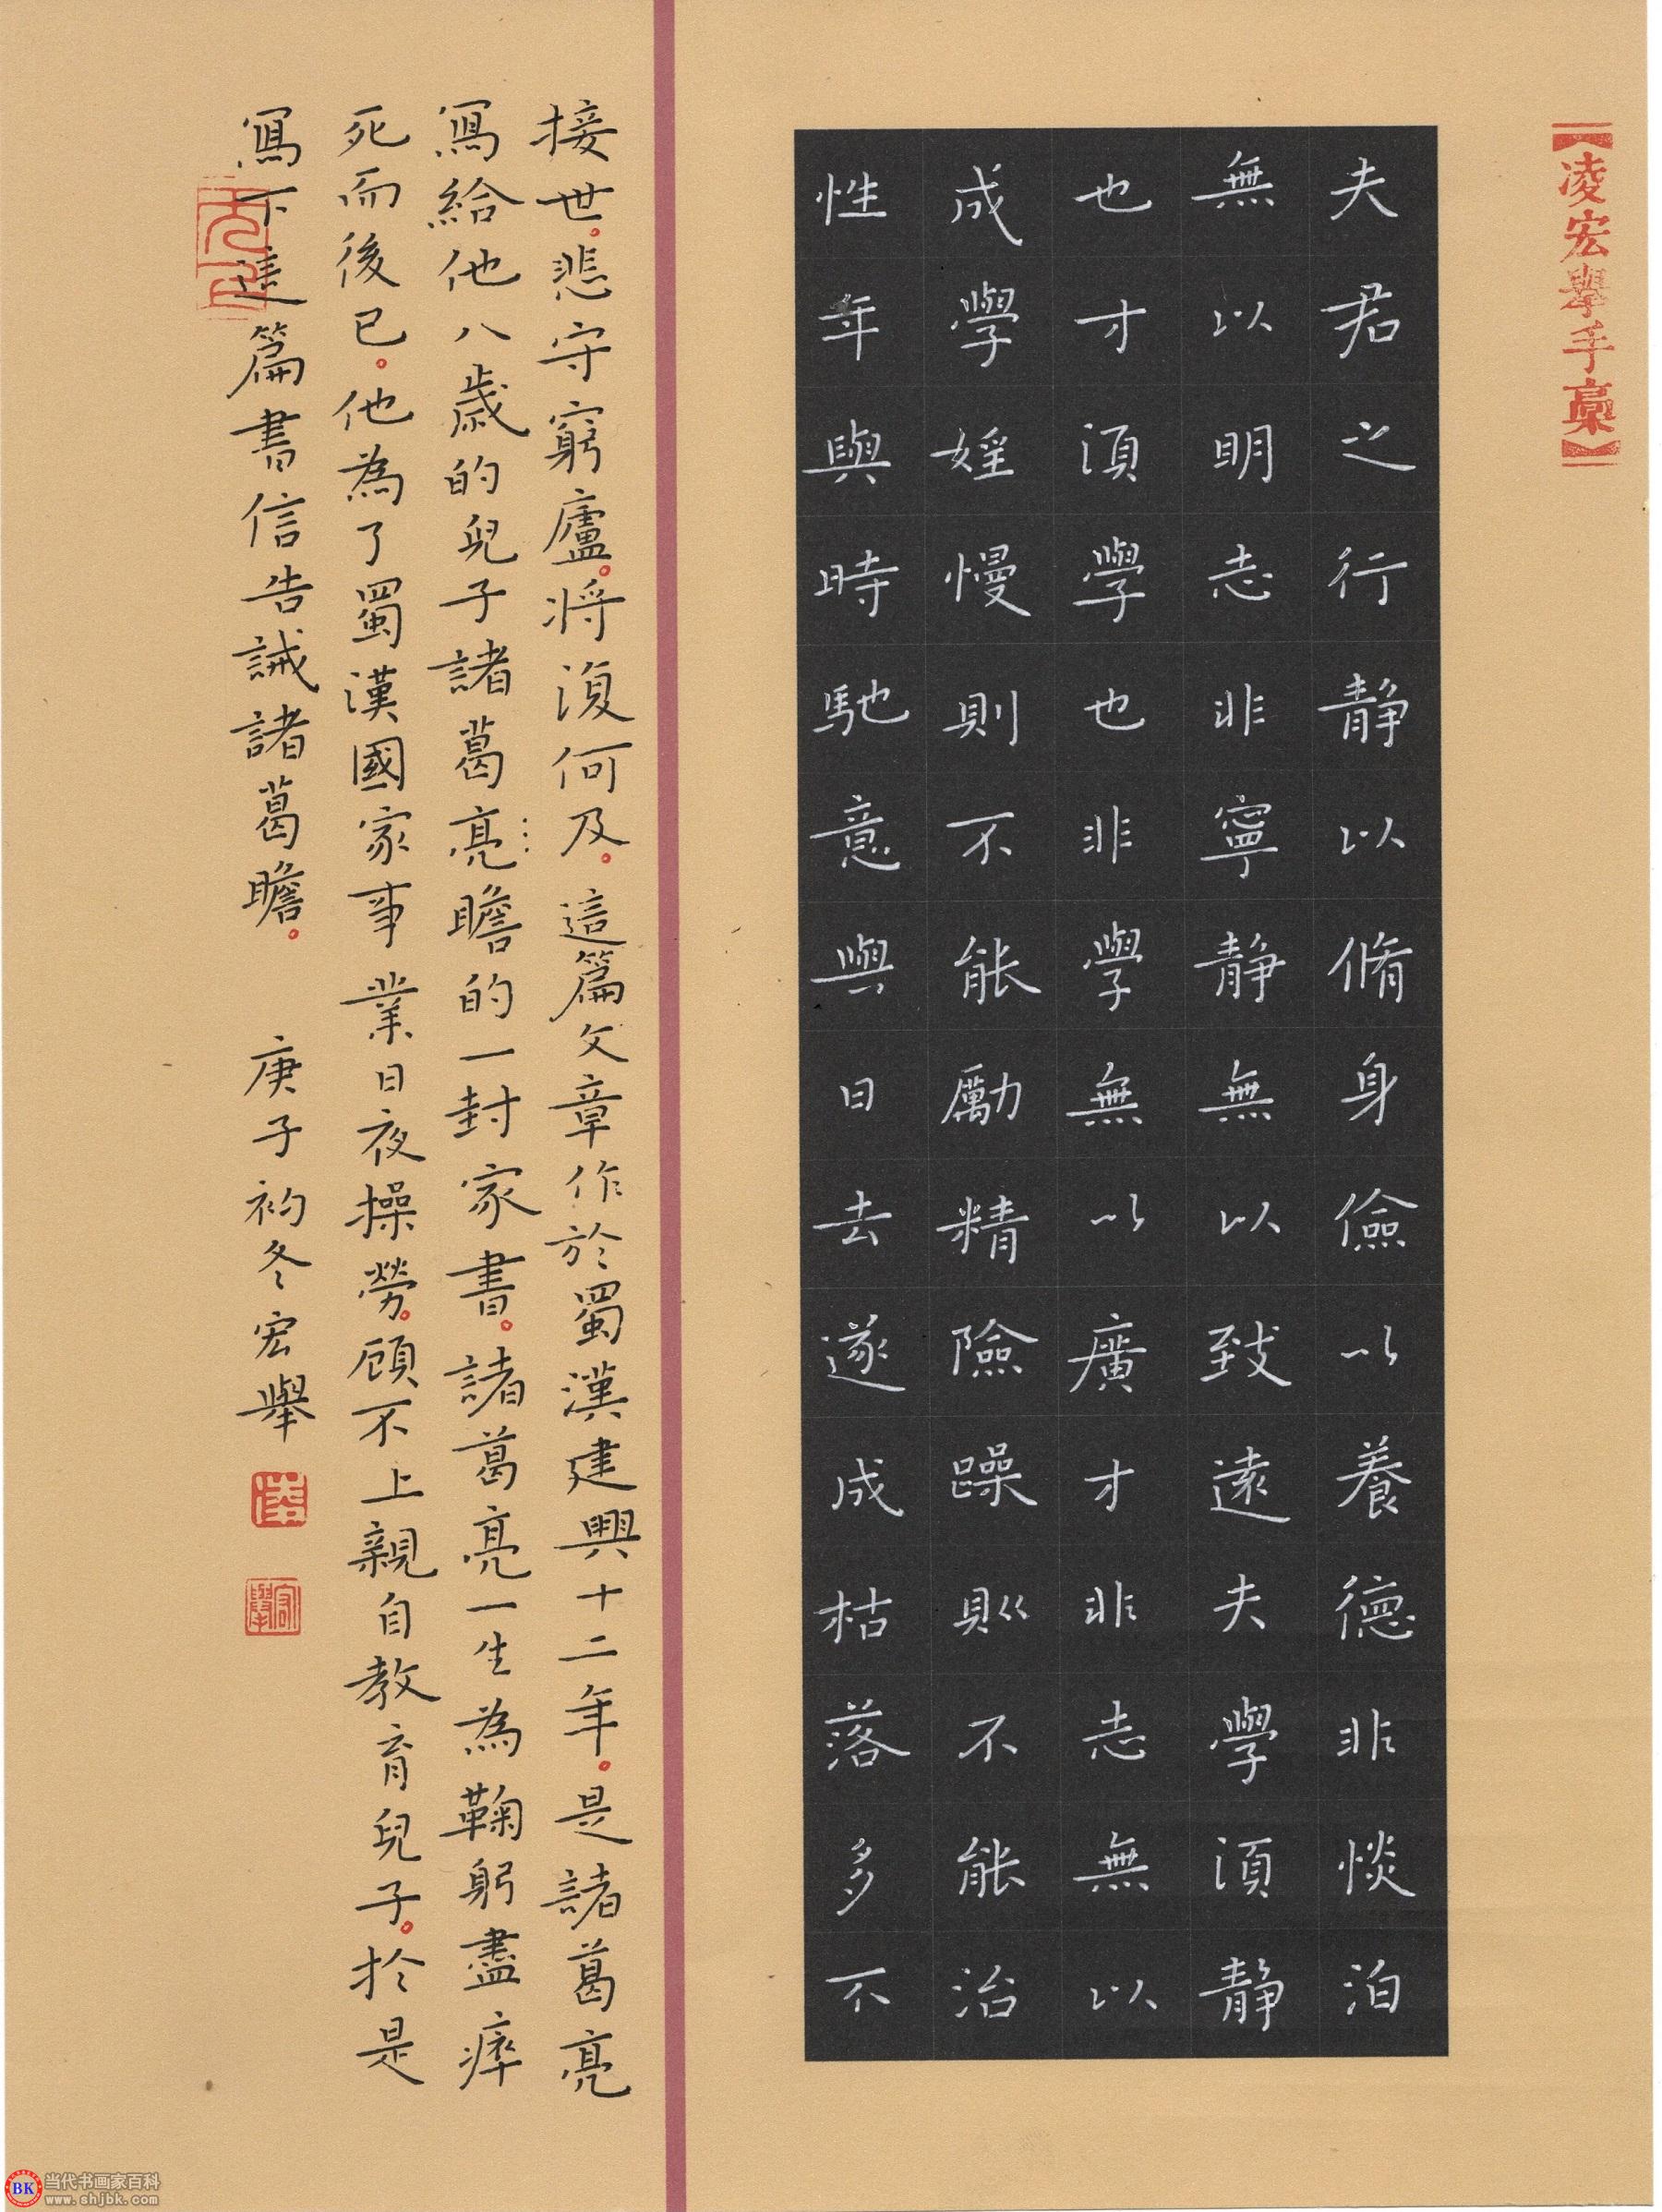 【凌宏舉手稾】
夫君之行静以脩身儉以養德非惔泊
無以明志非寧静無以致遠夫學湏静
也才湏學也非學無以廣才非志無以
成學婬慢則不能勵精險躁則不能治
性年與時馳意與日去遂成枯落多不
接世。悲守窮廬。將復何及。這篇文章作於蜀漢建興十二年。是諸葛亮
寫給他八歲的兒子諸葛亮瞻的一封家書。諸葛亮一生為鞠躬盡瘁
死而後已。他為了蜀漢國家事業日夜操勞。顧不上親自教育兒子。於是
寫下這篇書信告誡諸葛瞻。 庚子初冬宏舉
凌
宏舉
BK 当代书画家百科
www.shjbk.com